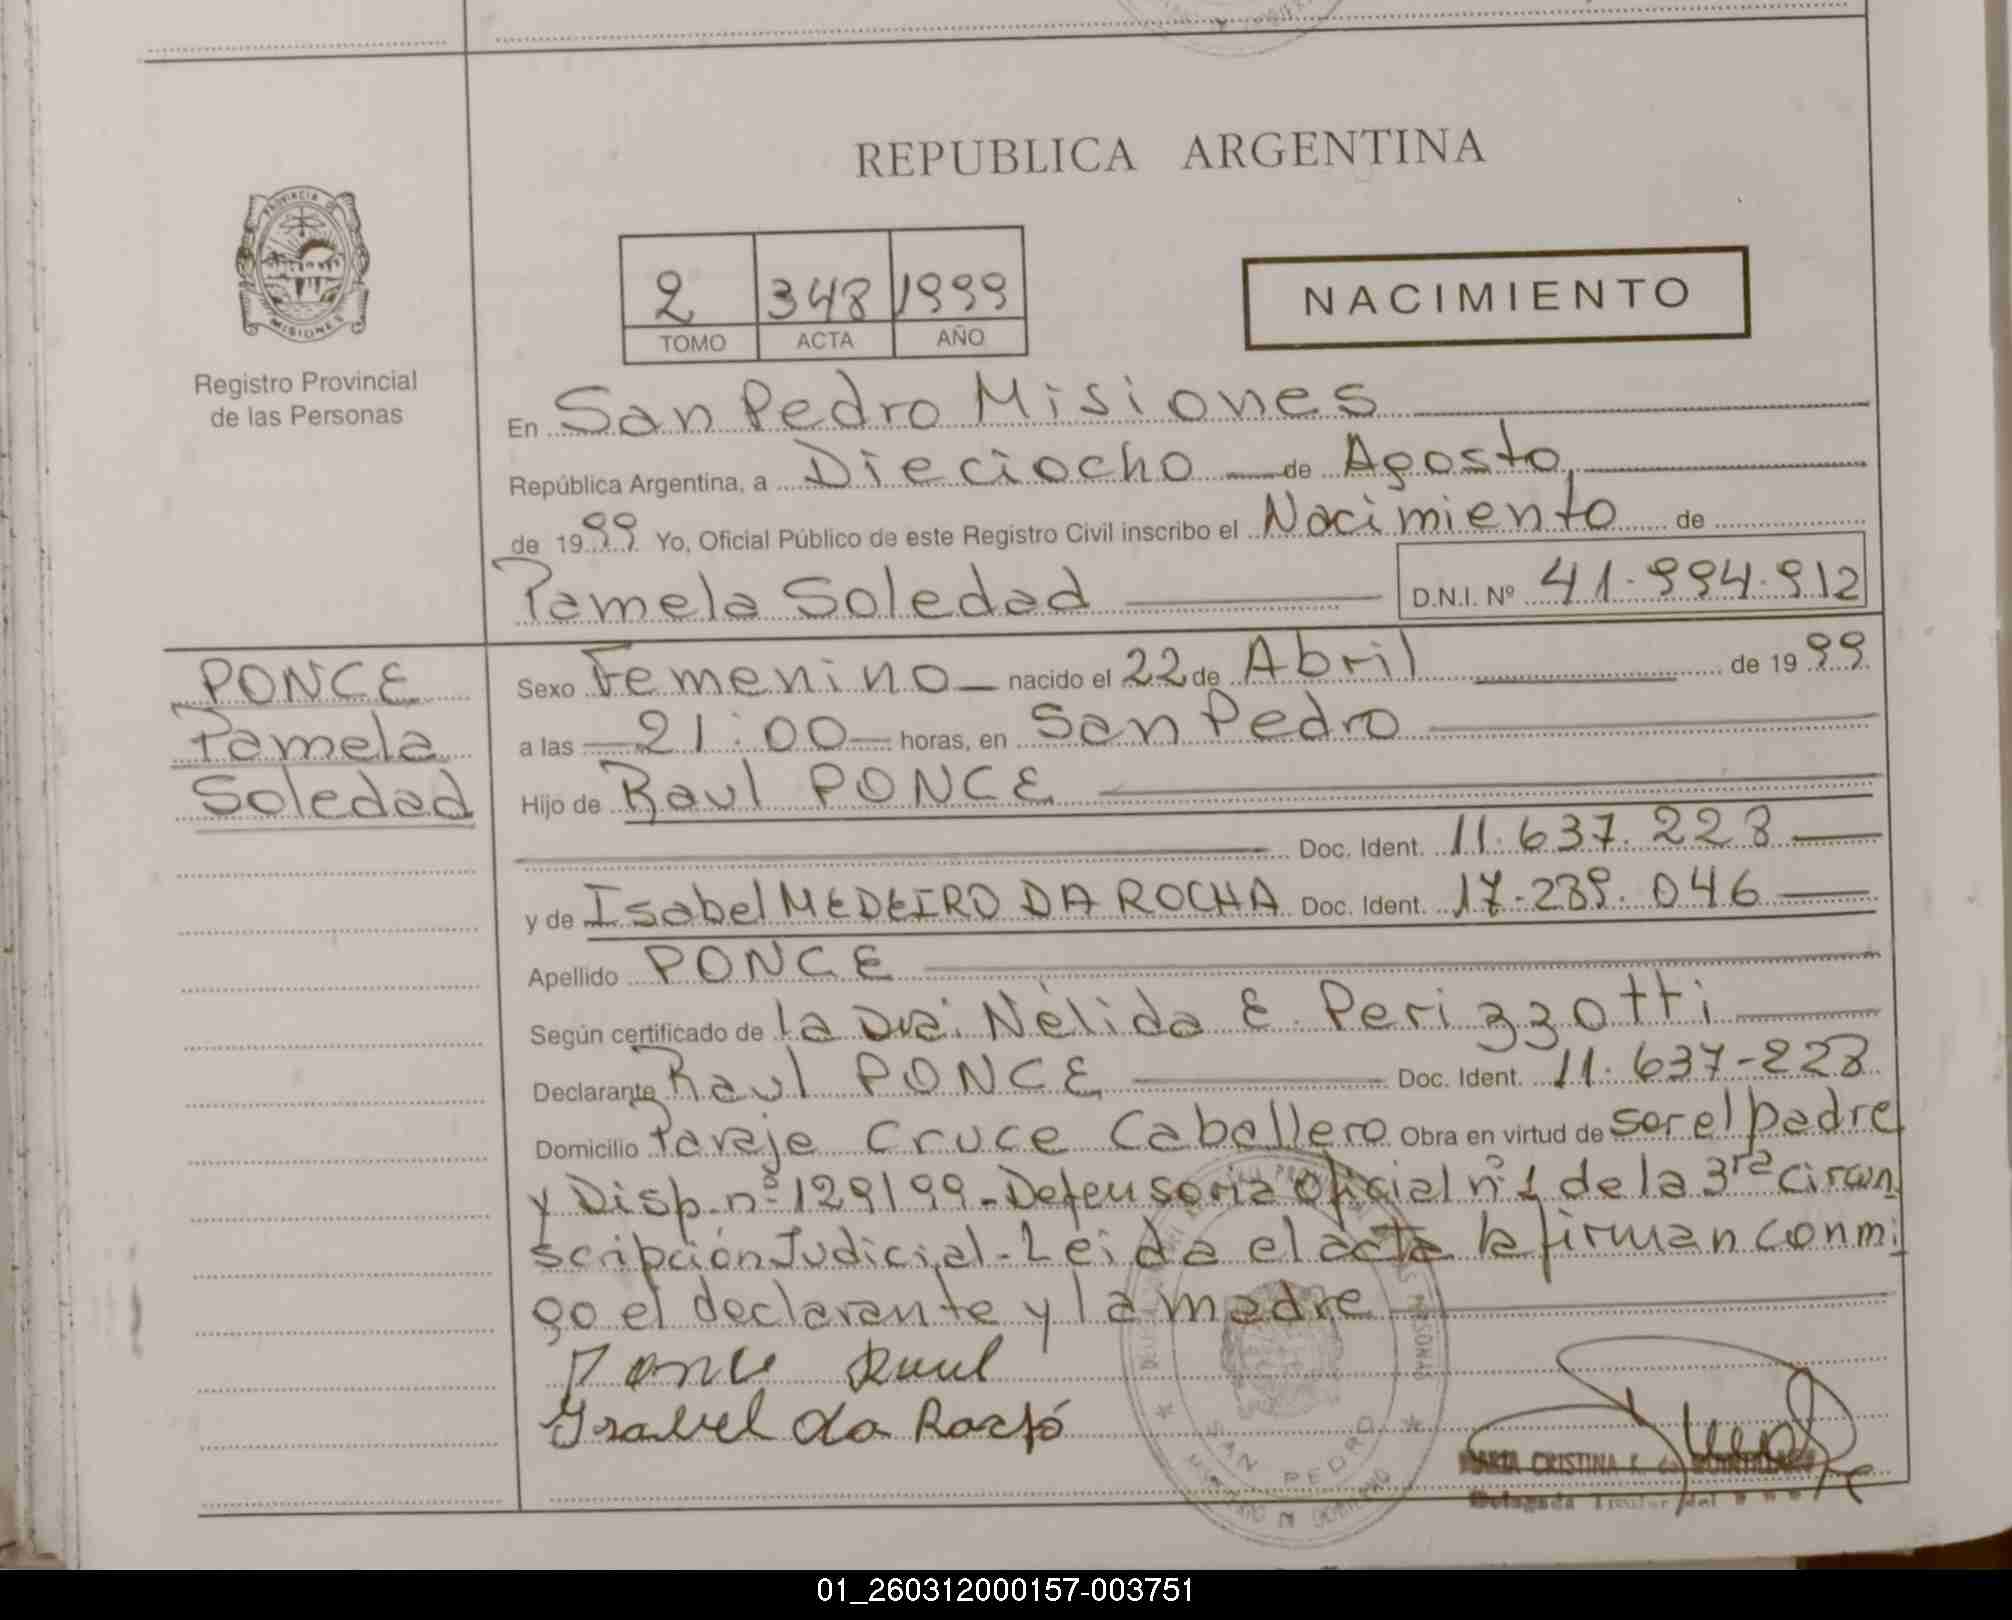 REPUBLICA ARGENTINA
PROVINCIA DE
MISIONES
Registro Provincial
de las Personas
2 348 1999
TOMO ACTA AÑO
NACIMIENTO
En San Pedro Misiones
República Argentina, a Dieciocho de Agosto,
de 1999 Yo, Oficial Público de este Registro Civil inscribo el Nacimiento de
Pamela Soledad D.N.I. Nº 41.994.912
PONCE
Pamela
Soledad
Sexo Femenino nacido el 22 de Abril de 1999
a las 21:00 horas, en San Pedro
Hijo de Raul PONCE
Doc. Ident. 11.637.228
y de Isabel MEDEIRO DA ROCHA Doc. Ident. 17-289.046
Apellido PONCE
Según certificado de la Dra. Nélida E. Perizzotti
Declarante Raul PONCE Doc. Ident. 11.637-228
Domicilio Paraje Cruce Caballero Obra en virtud de ser el padre
y Disp. nº 129/99-Defensoria Oficial nº 1 de la 3ra circun
scripción Judicial-Leida el acta la firman conmi
go el declarante y la madre
Ponce Raul
Isabel da Rocha
SAN PEDRO
MARIA CRISTINA
Delegada Titular del
01_260312000157-003751